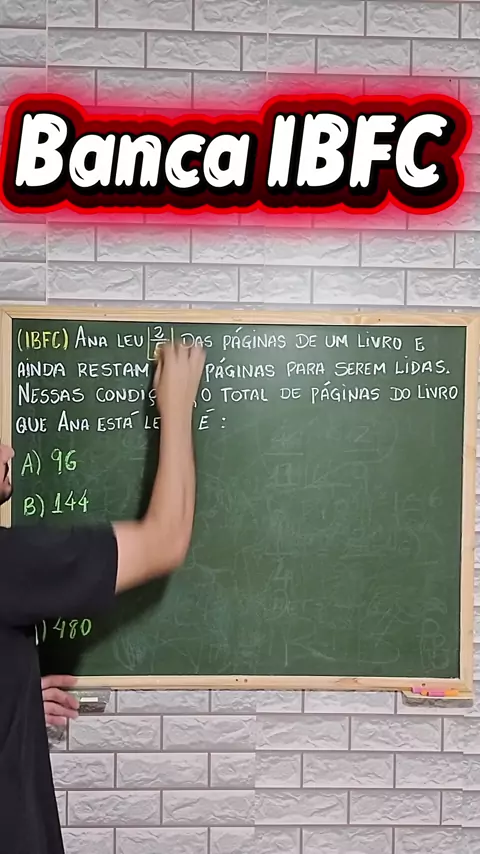 Banca IBFC
(IBFC) ANA LEU 2 DAS PÁGINAS DE UM LIVRO E
AINDA RESTAM PÁGINAS PARA SEREM LIDAS.
NESSAS O TOTAL DE PÁGINAS DO LIVRO
QUE ANA ESTÁ É :
A) 96
B) 144
) 480